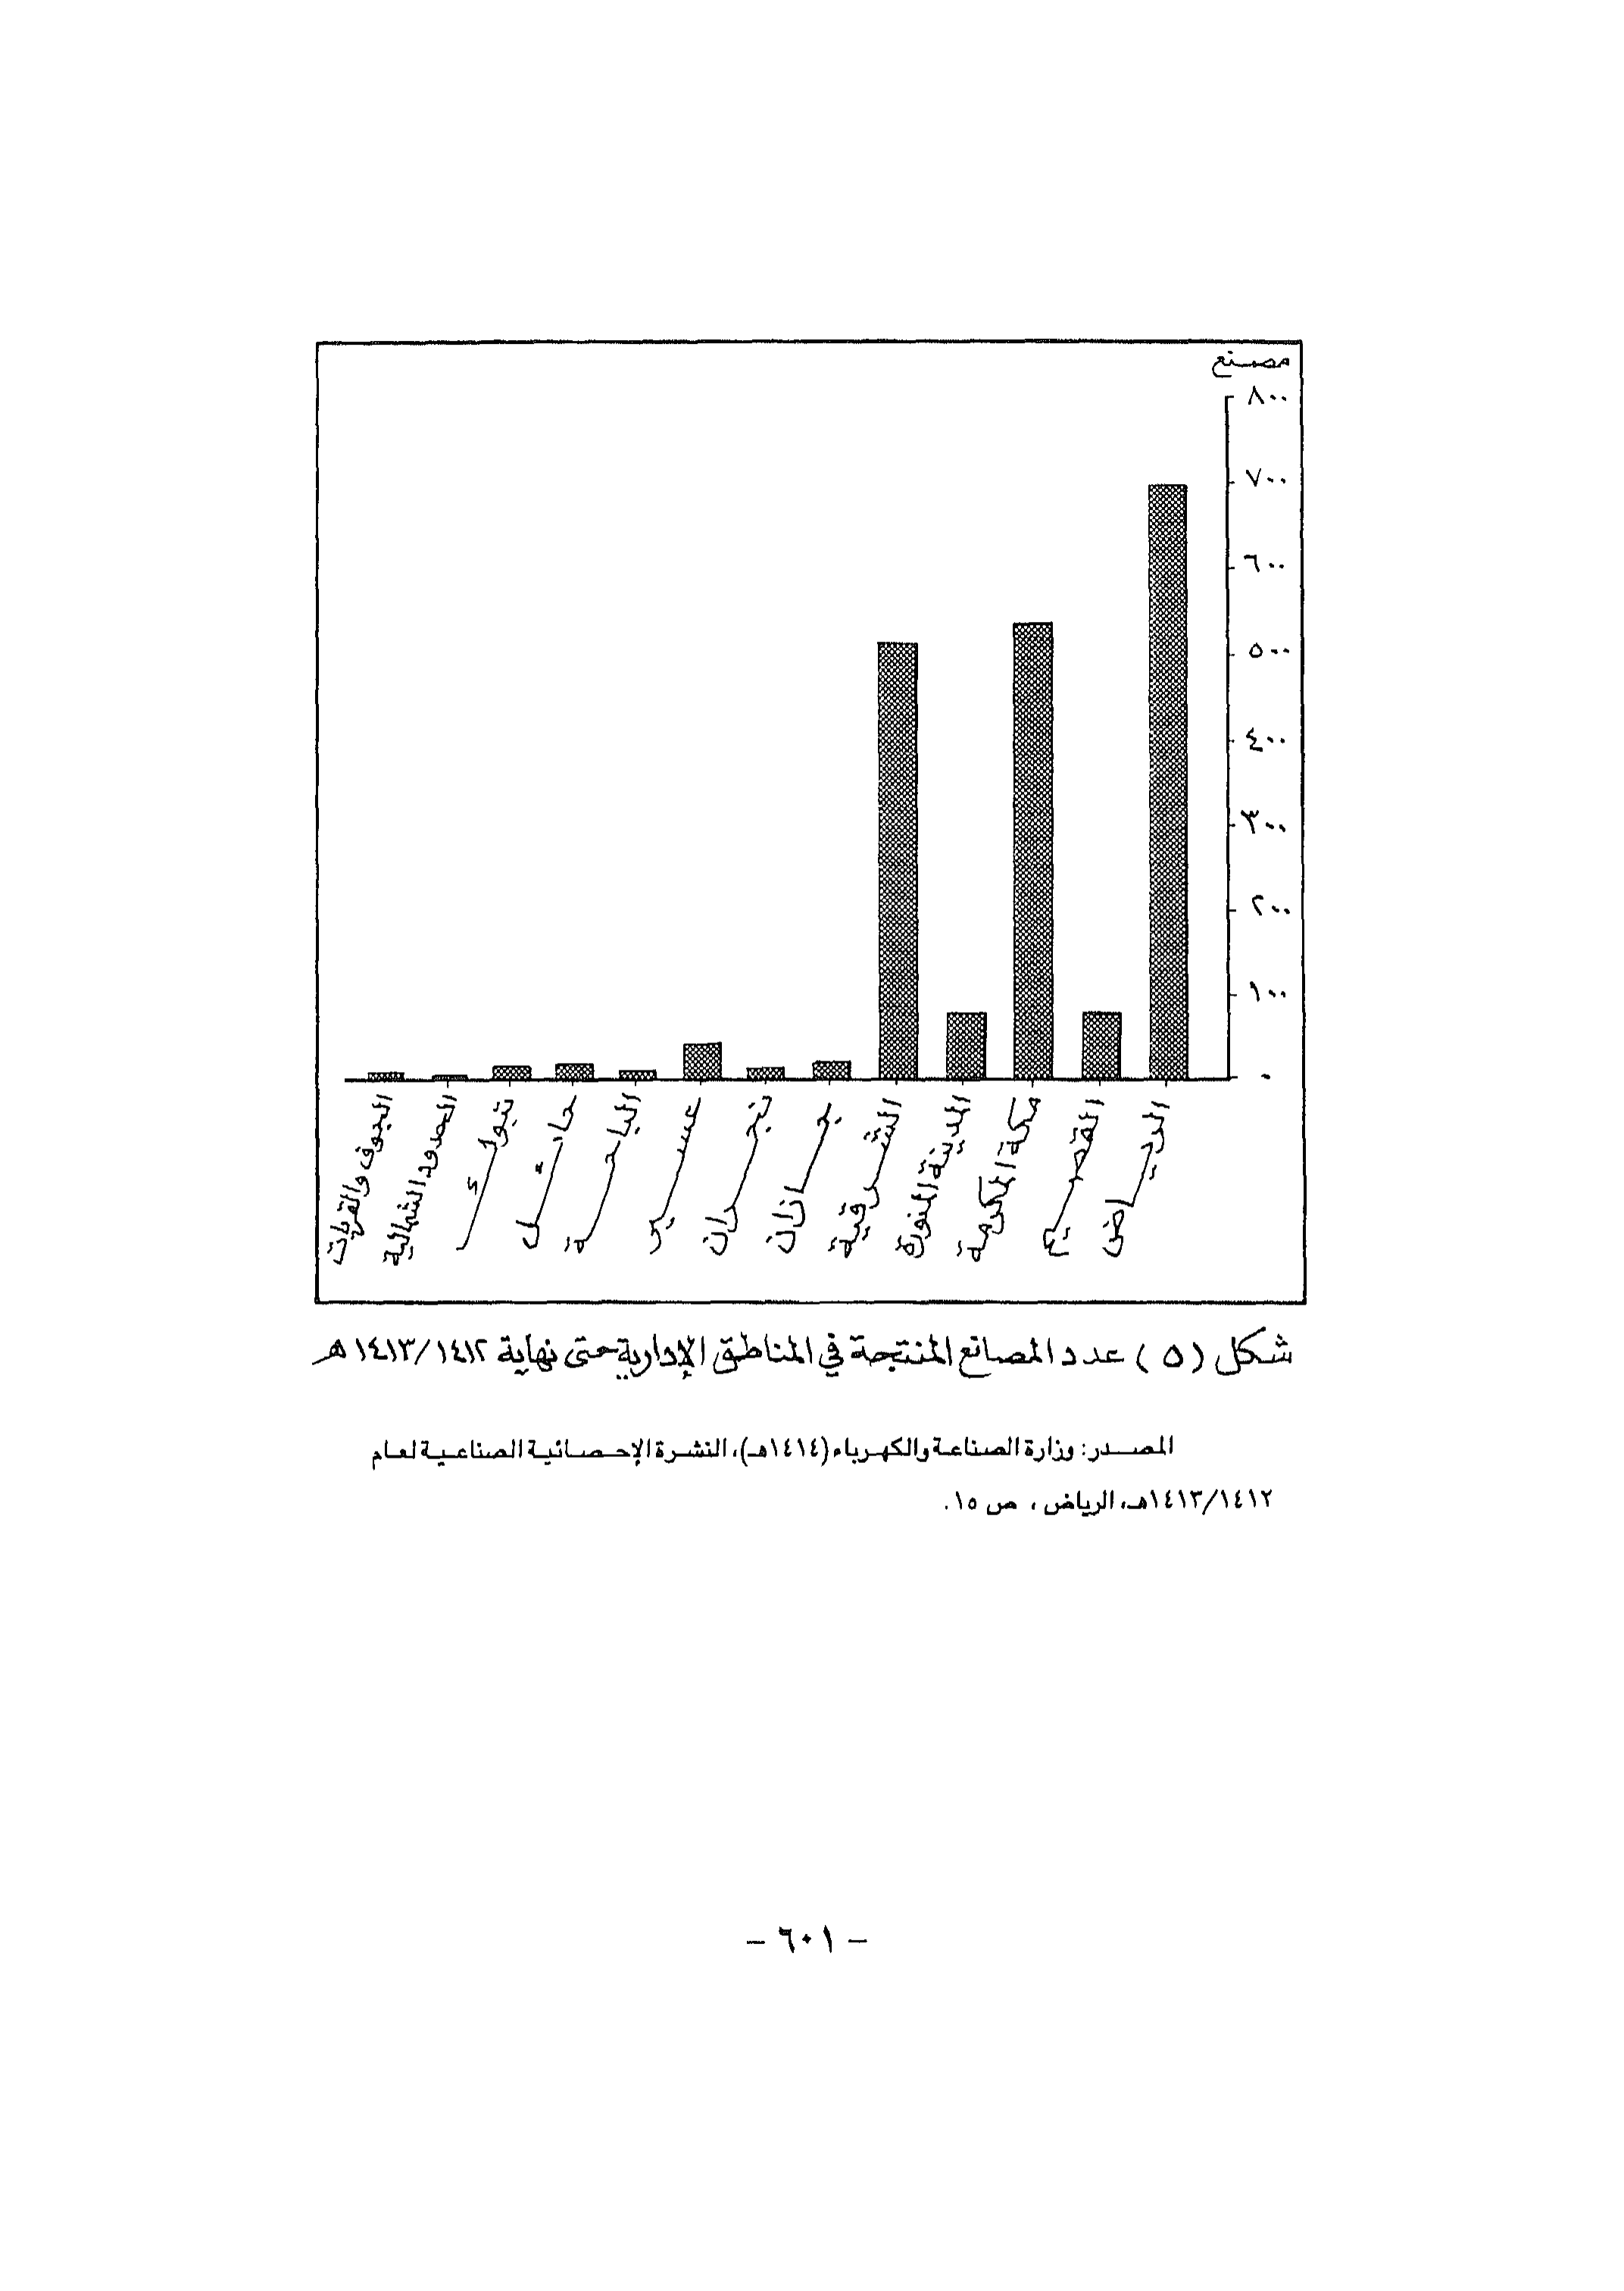 مصنع
٨٠٠
٧٠٠
٦٠٠
٥٠٠
٤٠٠
٣٠٠
٢٠٠
١٠٠
٠
الرياض
القصيم
مكة المكرمة
المدينة المنورة
الشرقية
جازان
نجران
عسير
الباحة
حائل
تبوك
الحدود الشمالية
الجوف والقريات
شكل (٥) عدد المصانع المنتجة في المناطق الإدارية حتى نهاية ١٤١٣/١٤١٢ هـ
المصدر: وزارة الصناعة والكهرباء (١٤١٤هـ)، النشرة الإحصائية الصناعية لعام
١٤١٣/١٤١٢هـ، الرياض ، ص ١٥.
– ٦٠١ –